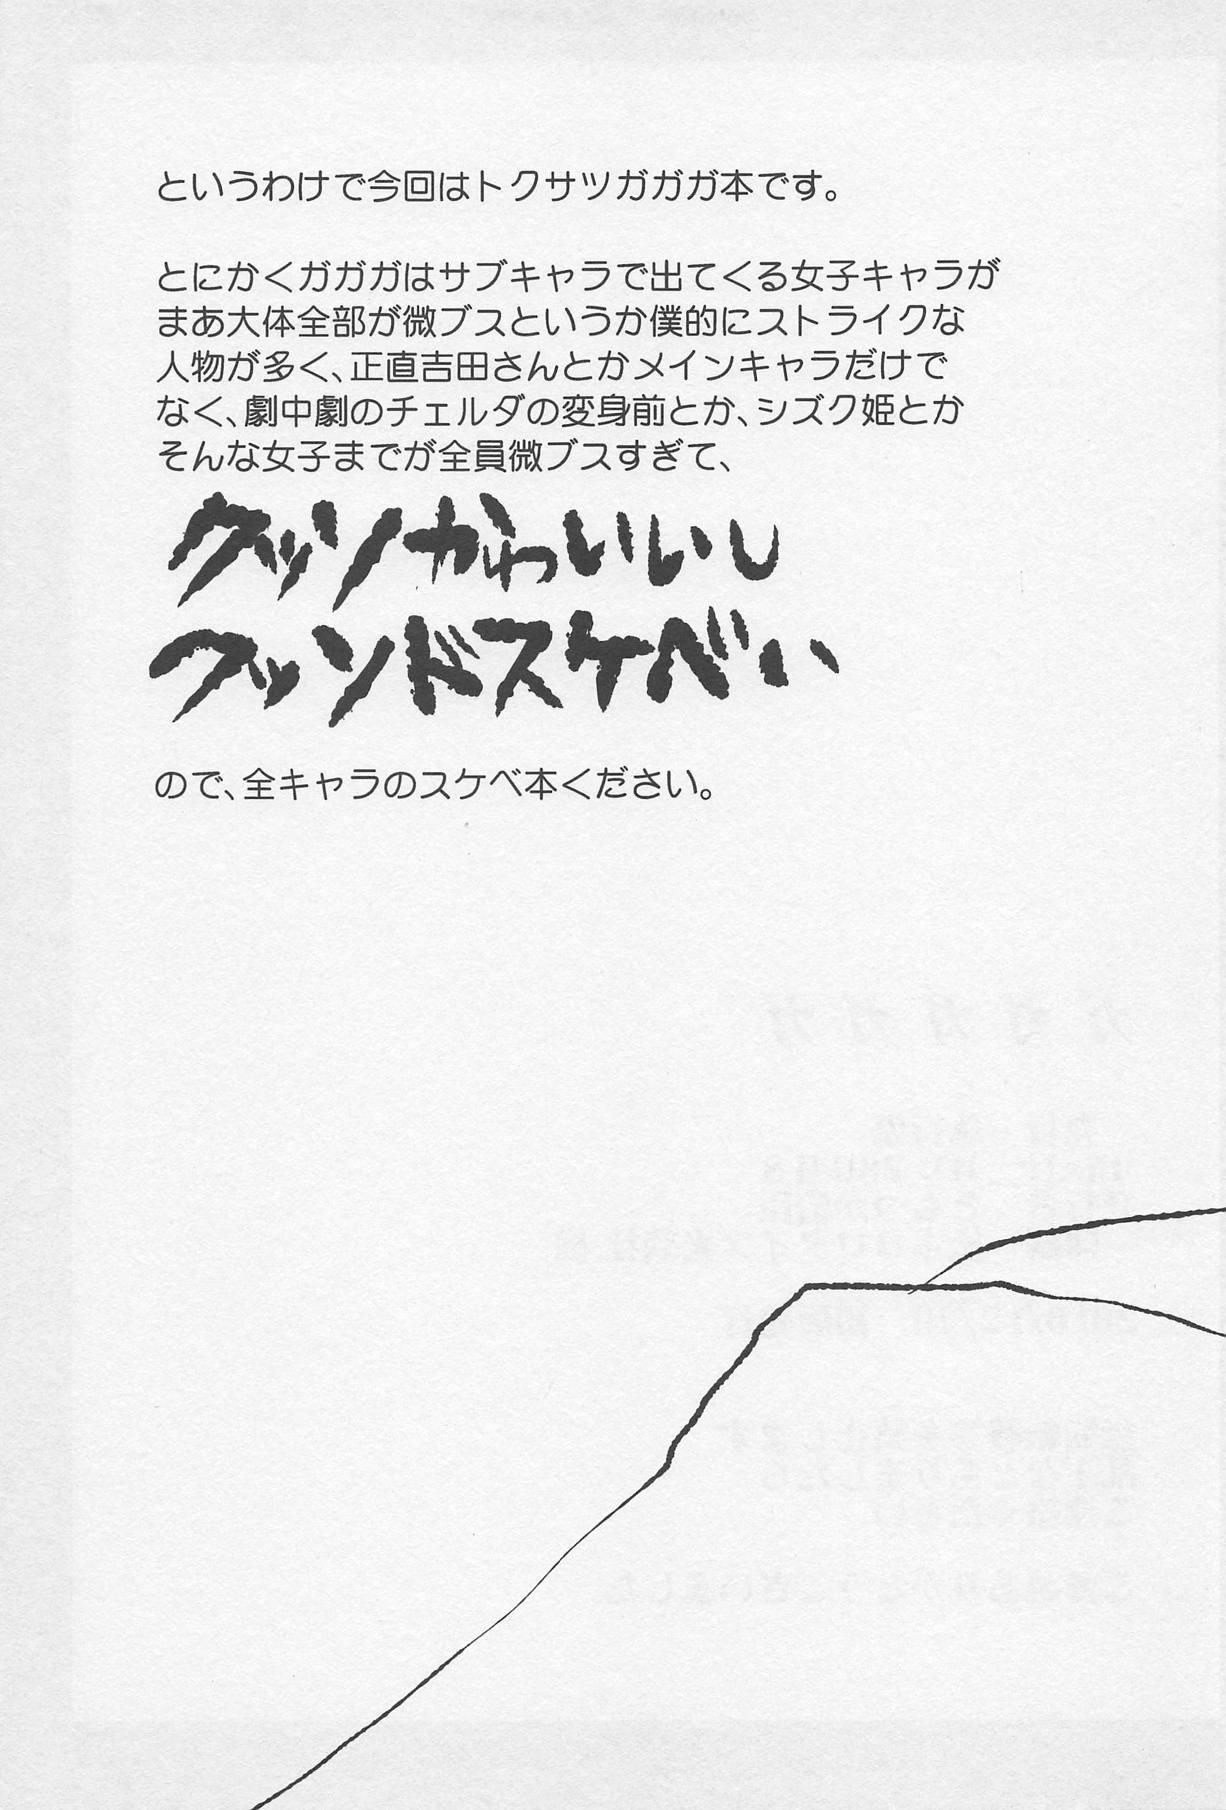 というわけで今回はトクサツガガガ本です。
とにかくガガガはサブキャラで出てくる女子キャラが
まあ大体全部が微ブスというか僕的にストライクな
人物が多く、正直吉田さんとかメインキャラだけで
なく、劇中劇のチェルダの変身前とか、シズク姫とか
そんな女子までが全員微ブスすぎて、
クッソかわいいし
クッソドスケベい
ので、全キャラのスケベ本ください。